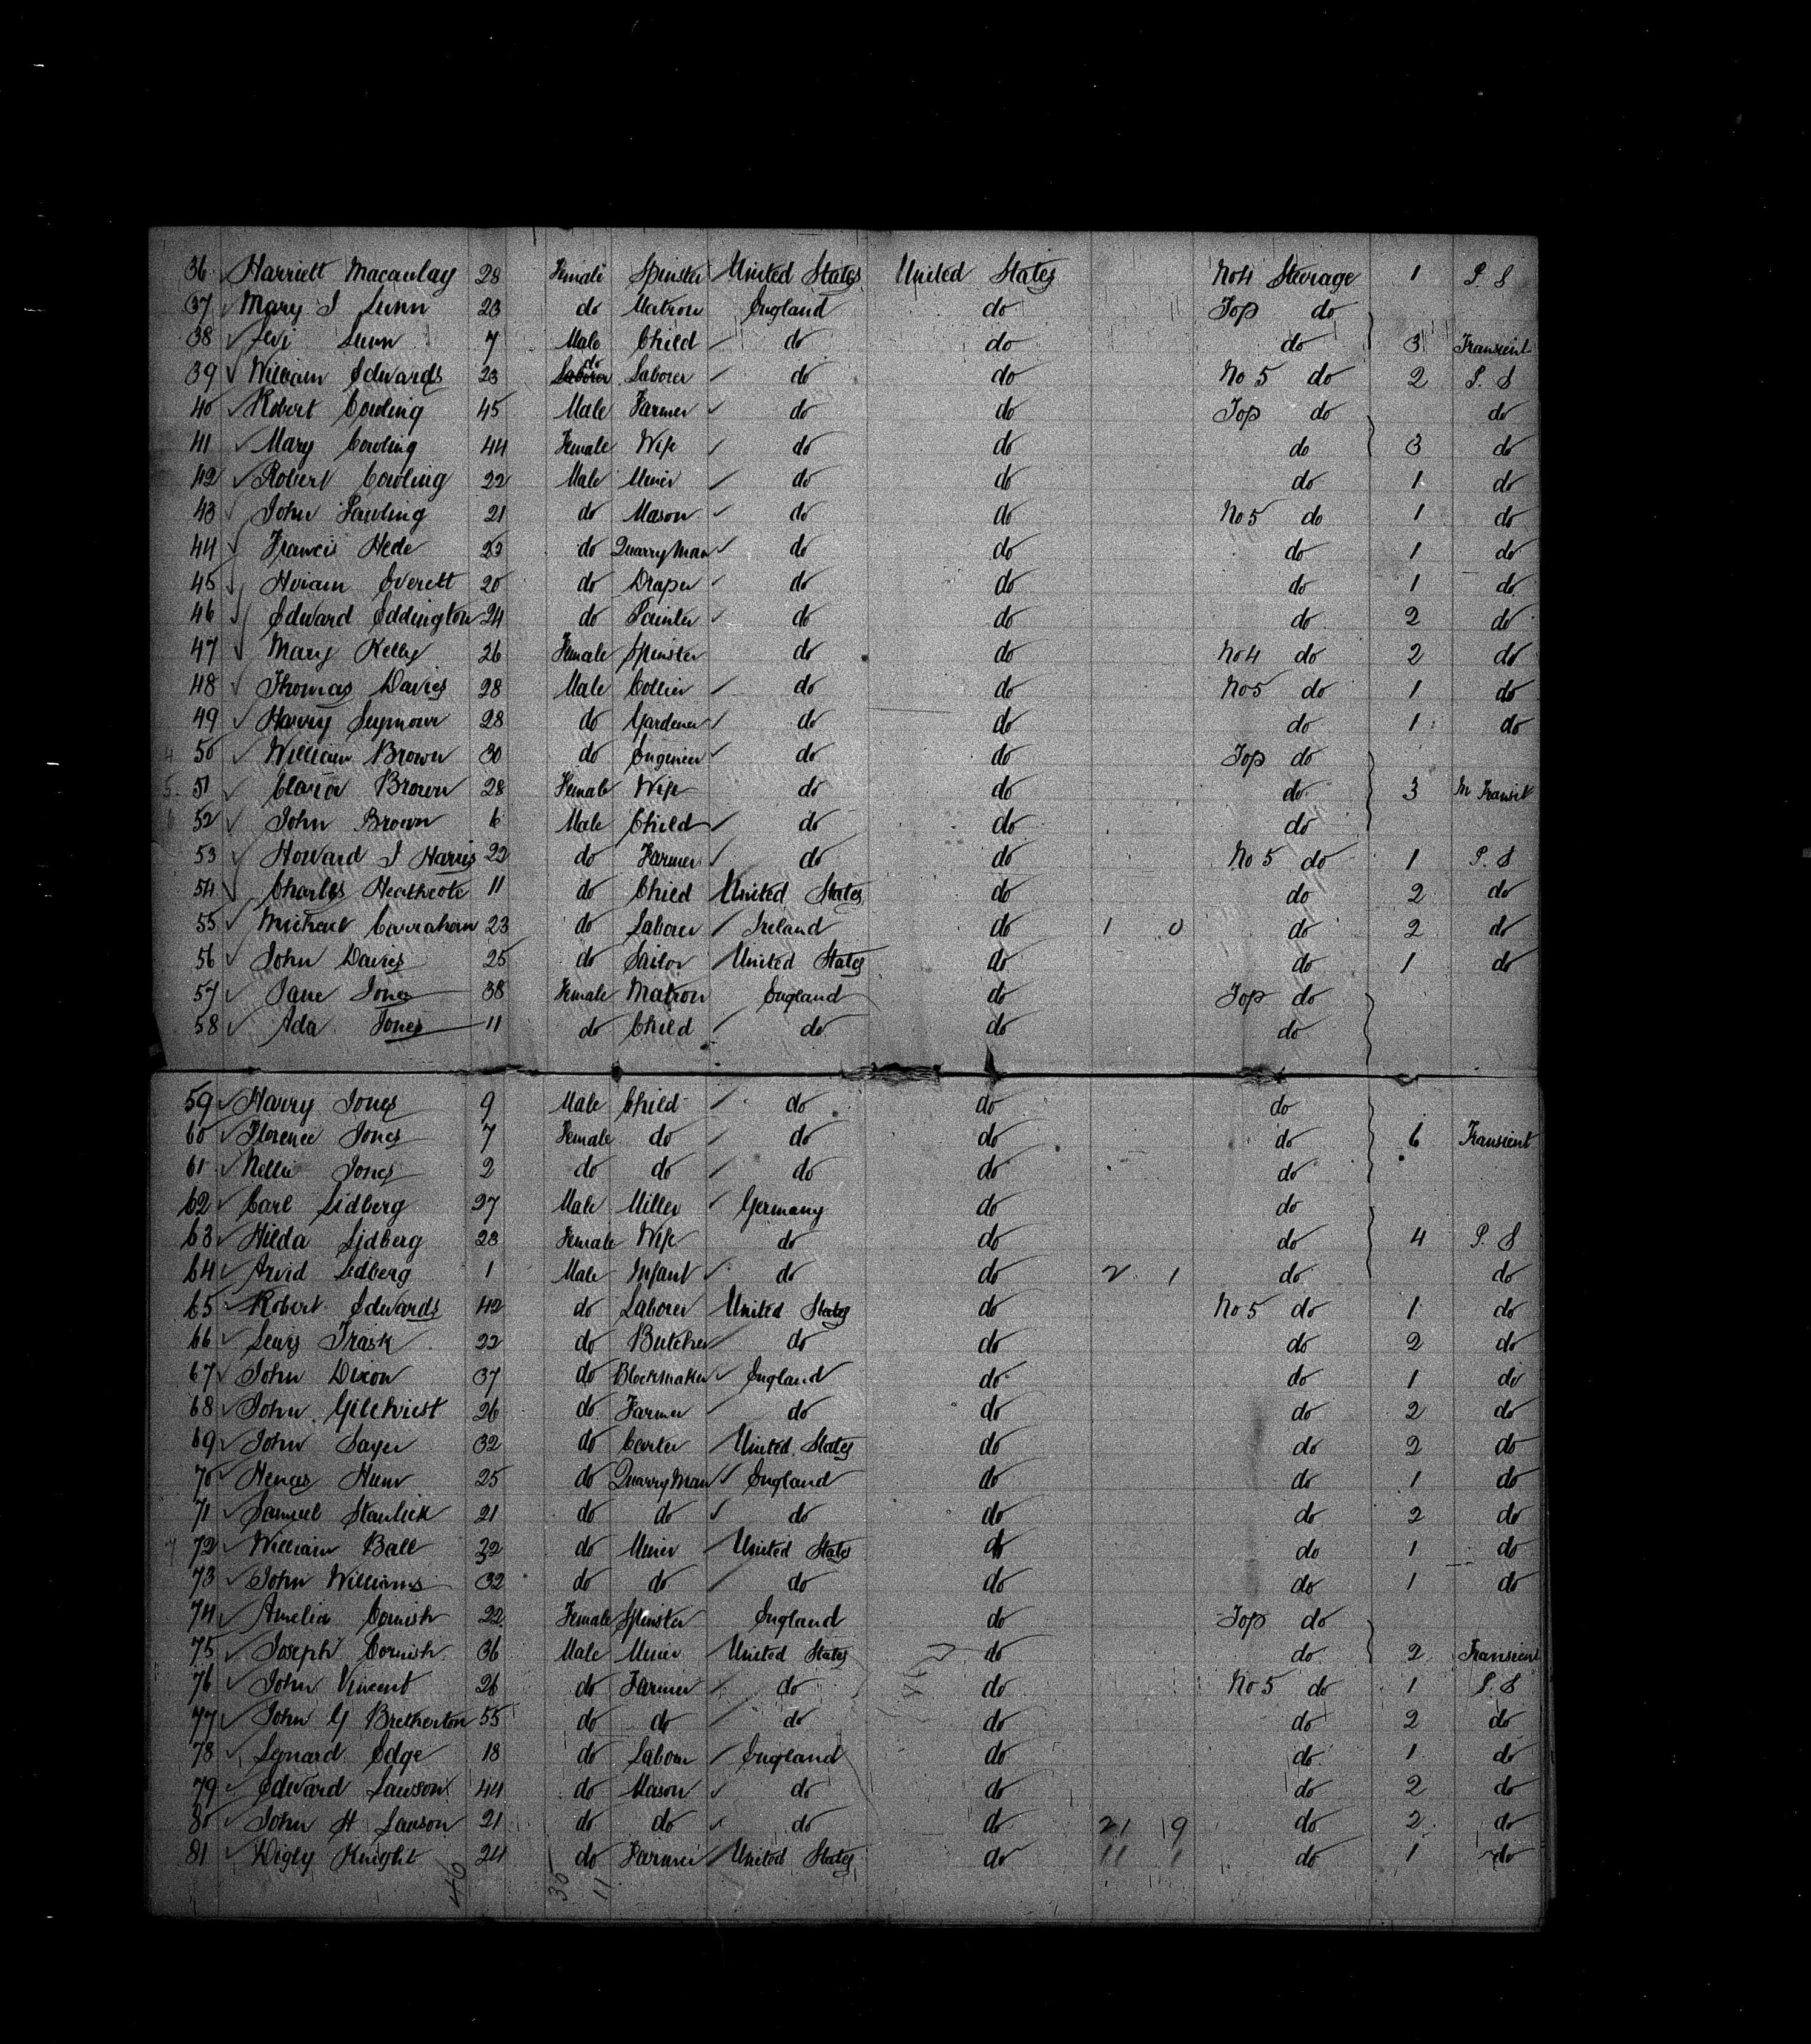 36 Harriett Macaulay 28 Female Spinster United States United States No 4 Steerage 1 P. S
37 Mary J Lunn 23 do Matron England do Top do
38 Levi Lunn 7 Male Child do do do 3 Transient
39 William Edwards 23 do Laborer do do No 5 do 2 P. S
40 Robert Cowling 45 Male Farmer do do Top do do
41 Mary Cowling 44 Female Wife do do do 3 do
42 Robert Cowling 22 Male Miner do do do 1 do
43 John 21 do Mason do do No 5 do 1 do
44 Francis Hede 23 do Quarry Man do do do 1 do
45 Hiram Everett 20 do Draper do do do 1 do
46 Edward Eddington 24 do Painter do do do 2 do
47 Mary Kelly 26 Female Spinster do do No 4 do 2 do
48 Thomas Davies 28 Male Collier do do No 5 do 1 do
49 Harry Seymour 28 do Gardener do do do 1 do
50 William Brown 30 do Engineer do do Top do
51 Clara Brown 28 Female Wife do do do 3 In Transit
52 John Brown 6 Male Child do do do
53 Howard J Harris 22 do Farmer do do No 5 do 1 P. S
54 Charles Heathcote 11 do Child United States do do 2 do
55 Michael 23 do Laborer Ireland do 1 0 do 2 do
56 John Davies 25 do Sailor United States do do 1 do
57 Jane Jones 38 Female Matron England do Top do
58 Ada Jones 11 do Child do do do
59 Harry Jones 9 Male Child do do do
60 Florence Jones 7 Female do do do do 6 Transient
61 Nellie Jones 2 do do do do do
62 Carl Lidberg 27 Male Miller Germany do do
63 Hilda Lidberg 23 Female Wife do do do 4 P. S
64 Arvid Lidberg 1 Male Infant do do 2 1 do do
65 Robert Edwards 42 do Laborer United States do No 5 do 1 do
66 Lewis Trask 22 do Butcher do do do 2 do
67 John Dixon 37 do Blockmaker England do do 1 do
68 John Gilchrist 26 do Farmer do do do 2 do
69 John Sayer 32 do Carter United States do do 2 do
70 25 do Quarry Man England do do 1 do
71 Samuel Stanlick 21 do do do do do 2 do
72 William Ball 32 do Miner United States do do 1 do
73 John Williams 32 do do do do do 1 do
74 Amelia Cornish 22 Female Spinster England do Top do
75 Joseph Cornish 36 Male Miner United States do do 2 Transient
76 John Vincent 26 do Farmer do do No 5 do 1 P. S
77 John G Bretherton 55 do do do do do 2 do
78 Leonard Edge 18 do Labour England do do 1 do
79 Edward Lawson 44 do Mason do do do 2 do
80 John H Lawson 21 do do do do 21 9 do 2 do
81 Digby Knight 24 do Farmer United States do 11 1 do 1 do
46 35 11